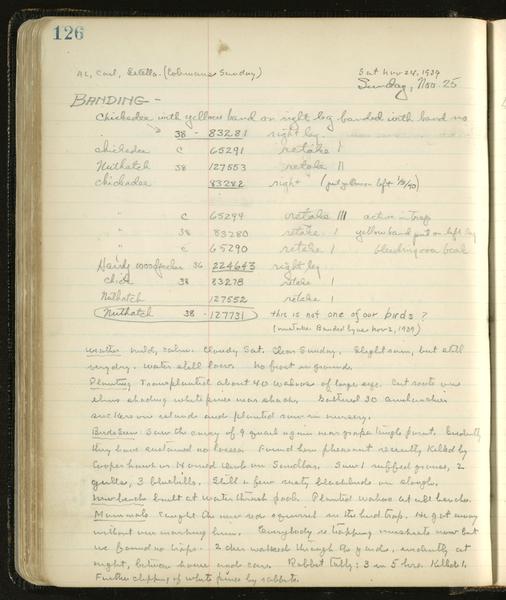 126
AL, Carl, Estella. (Colemans Sunday) Sat Nov 24, 1939
Sunday, Nov. 25
BANDING -
Chickadee with yellow band on right leg banded with band no
38 - 83281 right leg.
chickadee C 65291 retake 1
Nuthatch 38 127553 retake 11
chickadee 83282 right (put yellow on left 1/8/40)
" C 65294 retake 111 active in trap
" 38 83280 retake 1 yellow band put on left leg
" C 65290 retake 1 bleeding over beak
Hairy woodpecker 36 224643 right leg
Chick 38 83278 retake 1
Nuthatch 127552 retake 1
Nuthatch 38 - 127731 this is not one of our birds?
(mistake Banded by us Nov 2, 1939)
Weather mild, calm. Cloudy Sat. Clear Sunday. Slight rain, but still
very dry. Water still low. No frost in ground.
Planting Transplanted about 40 Wahoos of large size. Cut some
elms shading white pines near shack. Gathered 30
suckers on island and planted row in nursery.
Birds Seen: Saw the covey of 9 quail again near grape tangle point. Evidently
they have sustained no losses. Found hen pheasant recently killed by
Cooper hawk or Horned Owl on Sandbar. Saw 1 ruffed grouse, 2
gulls, 3 bluebills. Still a few rusty blackbirds on slough.
New bench built at water thrush pool. Planted wahoo at all benches.
Mammals. Caught the new red squirrel in the bird trap. He got away
without our marking him. Everybody is trapping muskrats now but
we found no traps. 2 deer walked through the yards, evidently at
night, between house and cars. Rabbit Tally: 3 in 5 hrs. Killed 1.
Further clipping of white pines by rabbits.